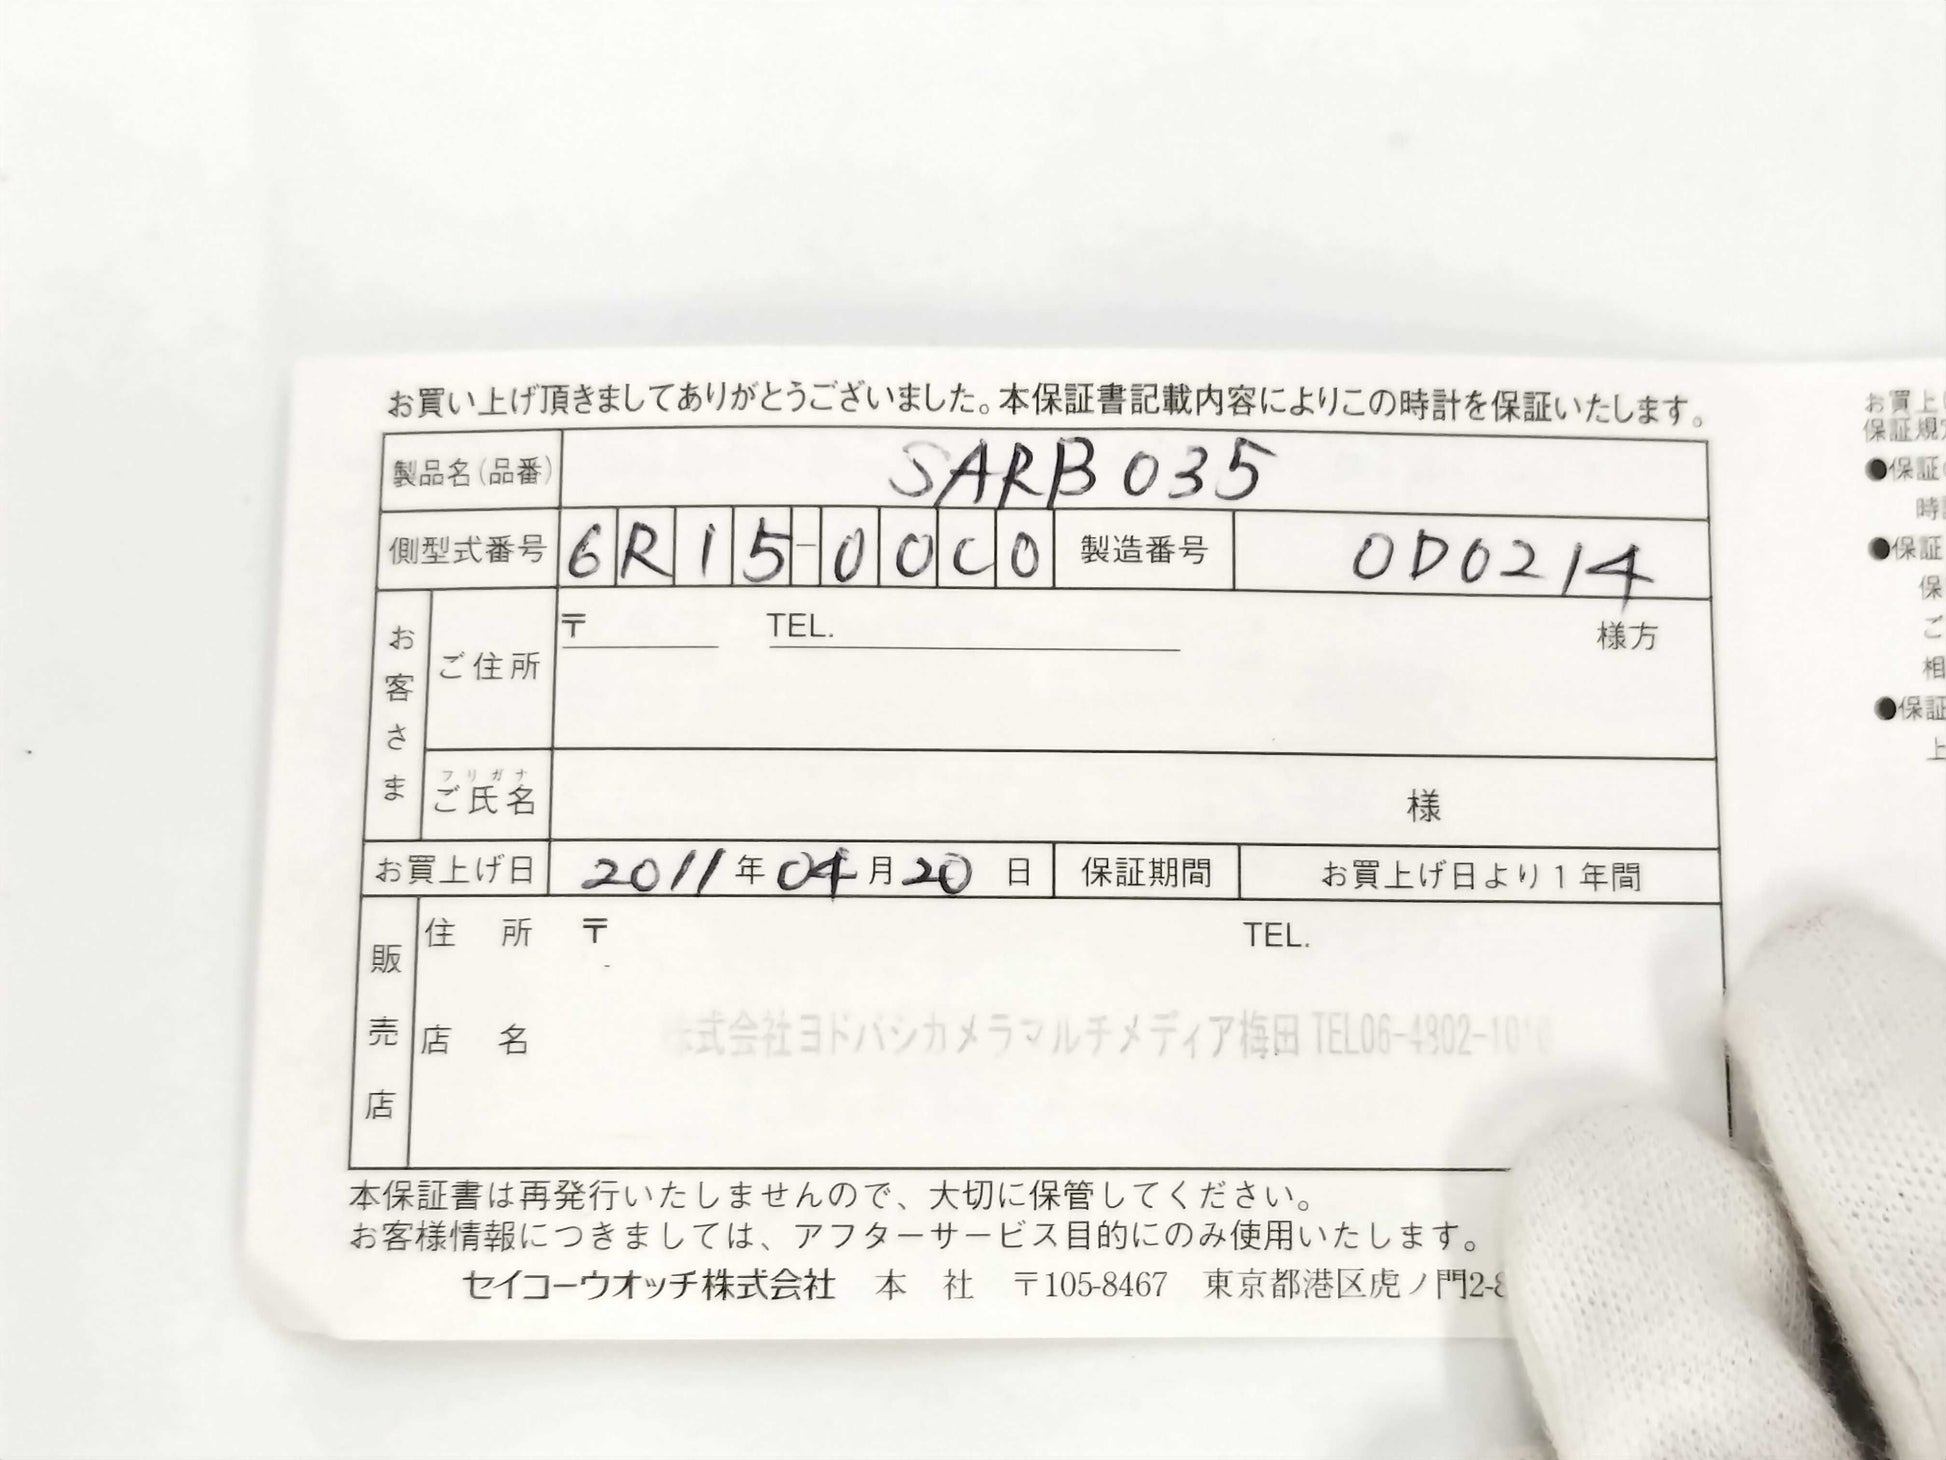 お買い上げ頂きましてありがとうございました。本保証書記載内容によりこの時計を保証いたします。
製品名(品番) SARB035
側型式番号 6R15-00C0 製造番号 0D0214
お客さま
ご住所 〒 TEL. 様方
フリガナ
ご氏名 様
お買上げ日 2011年04月20日 保証期間 お買上げ日より1年間
販売店
住所 〒 TEL.
店名 株式会社ヨドバシカメラマルチメディア梅田 TEL06-4802-1010
本保証書は再発行いたしませんので、大切に保管してください。
お客様情報につきましては、アフターサービス目的にのみ使用いたします。
セイコーウオッチ株式会社 本社 〒105-8467 東京都港区虎ノ門2-8
お買上
保証規定
●保証
時
●保証
保
ご
相
●保証
上